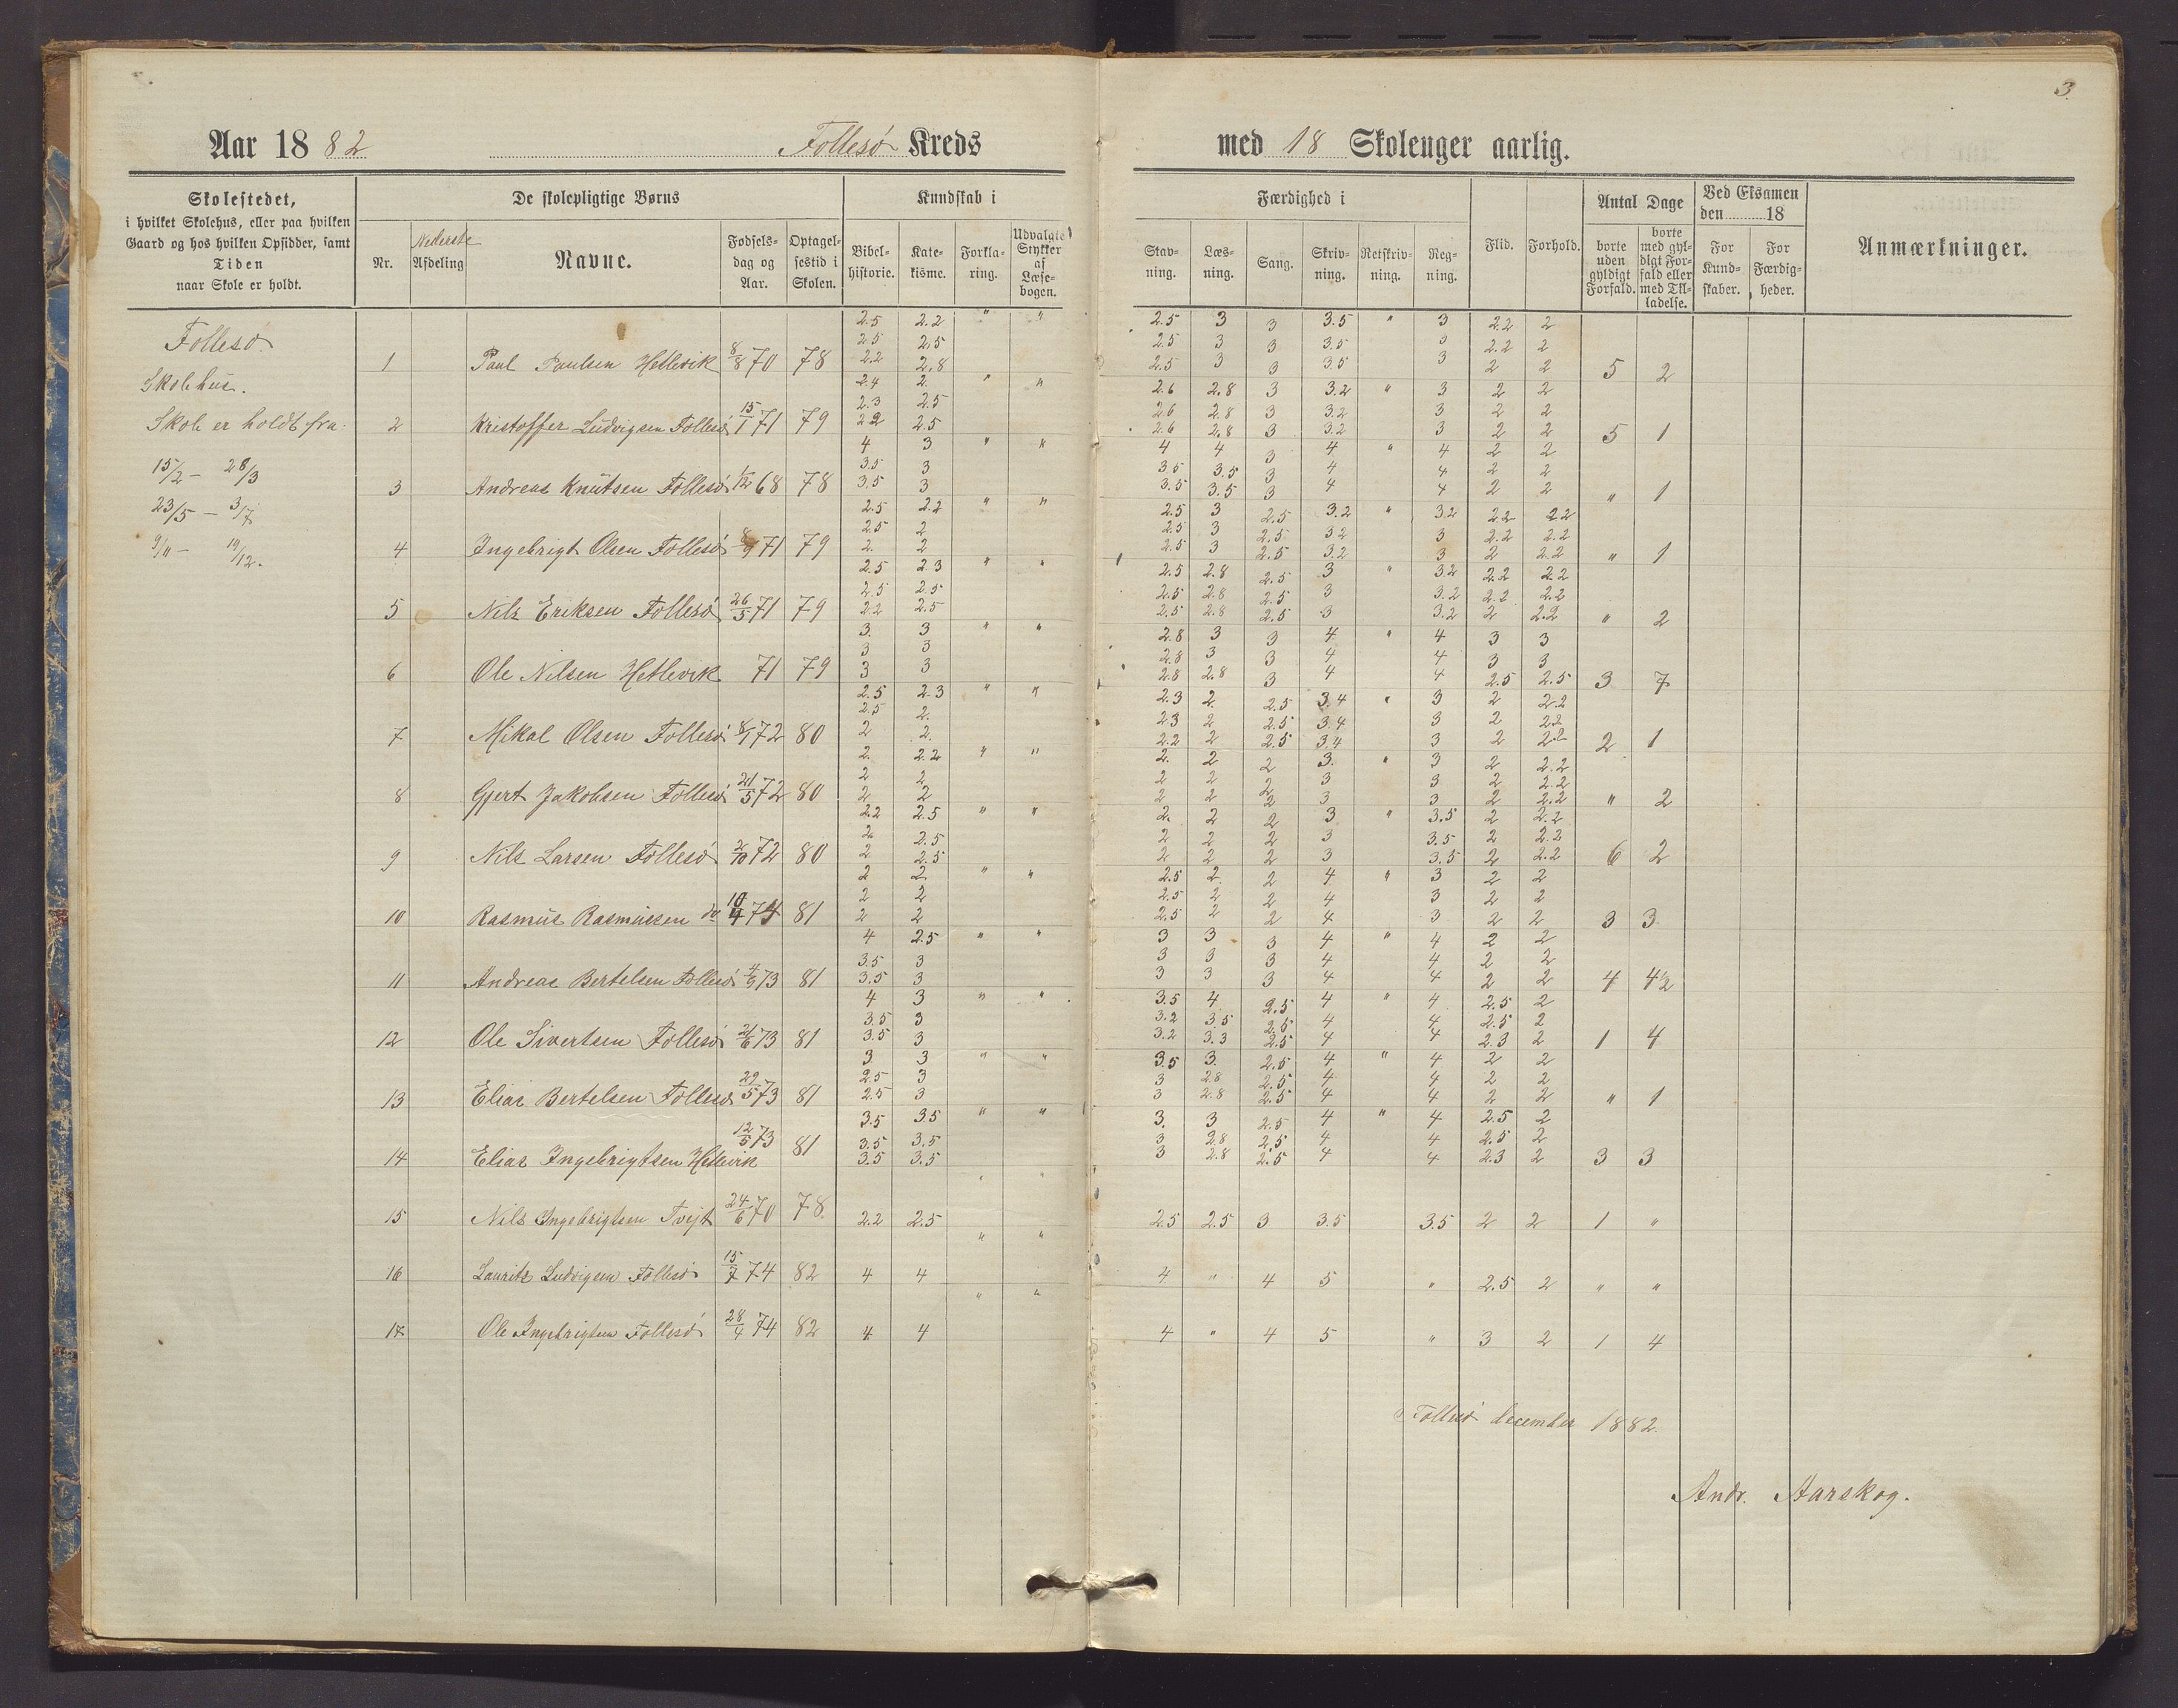 3.
Aar 1882 Follesø Kreds med 18 Skoleuger aarlig.
Skolestedet,
i hvilket Skolehus, eller paa hvilken
Gaard og hos hvilken Opsidder, samt
Tiden
naar Skole er holdt.
De skolepligtige Børns
Nr.
Nederste
Afdeling
Navne.
Fødsels-
dag og
Aar.
Optagel-
sestid i
Skolen.
Kundskab i
Bibel-
historie.
Kate-
kisme.
Forkla-
ring.
Udvalgte
Stykker
af
Læse-
bogen.
Færdighed i
Stav-
ning.
Læs-
ning.
Sang.
Skriv-
ning.
Retskriv-
ning.
Reg-
ning.
Flid.
Forhold.
Antal Dage
borte
uden
gyldigt
Forfald.
borte
med gyl-
digt For-
fald eller
med Til-
ladelse.
Ved Eksamen
den 18
For
Kund-
skaber.
For
Færdig-
heder.
Anmærkninger.
Follesø
Skolehus.
Skole er holdt fra:
15/2 - 28/3
23/5 - 3/7
9/11 - 19/12.
2.5 2.2 " " 2.5 3 3 3.5 " 3 2.2 2
2.5 2.5 2.5 3 3 3.5 3 2.2 2
1 Paul Paulsen Hetlevik 8/8 70 78 2.2 2.8 2.5 3 3 3.5 3 2 2 5 2
2.4 2 " " 2.6 2.8 3 3.2 " 3 2 2
2.3 2.5 2.6 2.8 3 3.2 3 2 2
2 Kristoffer Ludvigsen Follesø 15/1 71 79 2.2 2.5 2.6 2.8 3 3.2 3 2 2 5 1
4 3 " " 4 4 3 4 " 4 2 2
3.5 3 3.5 3.5 3 4 4 2 2
3 Andreas Knutsen Follesø 1/12 68 78 3.5 3 3.5 3.5 3 4 4 2 2 " 1
2.5 2.2 " " 2.5 3 2.5 3.2 " 3.2 2.2 2.2
2.5 2 2.5 3 2.5 3.2 3 2.2 2.2
4 Ingebrigt Olsen Follesø 8/9 71 79 2. 2 2.5 3 2.5 3.2 3 2 2.2 " 1
2.5 2.3 " " 2.5 2.8 2.5 3 " 3.2 2.2 2.2
2.5 2.5 2.5 2.8 2.5 3 3.2 2.2 2.2
5 Nils Eriksen Follesø 26/5 71 79 2.2 2.5 2.5 2.8 2.5 3 3.2 2 2.2 " 2
3. 3 " " 2.8 3 3 4 " 4 3 3
3 3 2.8 3 3 4 4 3 3
6 Ole Nilsen Hetlevik 71 79 3 3 2.8 2.8 3 4 4 2.5 2.5 3 7
2.5 2.3 " " 2.3 2. 2.5 3.4 " 3 2 2.2
2.5 2. 2.3 2 2.5 3.4 3 2 2.2
7 Mikal Olsen Follesø 8/1 72 80 2 2. 2.2 2 2.5 3.4 3 2 2.2 2 1
2. 2.2 " " 2. 2 2 3. " 3 2 2.2
2 2 2 2 2 3 3 2 2.2
8 Gjert Jakobsen Follesø 21/5 72 80 2 2 2 2 2 3 3 2 2.2 " 2
2.2 2.5 " " 2. 2 2 3 " 3.5 2 2.2
2 2.5 2 2 2 3 3.5 2 2.2
9 Nils Larsen Follesø 2/10 72 80 2 2.5 2 2 2 3 3.5 2 2.2 6 2
2 2 " " 2.5 2. 2 4 " 3 2 2
2 2 2.5 2 2 4 3 2 2
10 Rasmus Rasmussen do 10/4 74 81 2 2 2.5 2 2 4 3 2 2 3 3.
4 2.5 " " 3 3 3 4 " 4 2 2
3.5 3 3 3 3 4 4 2 2
11 Andreas Bertelsen Follesø 4/9 73 81 3.5 3 3 3 3 4 4 2 2 4 4½
4 3 " " 3.5 4 2.5 4 " 4 2.5 2
3.5 3 3.2 3.5 2.5 4 4 2.5 2
12 Ole Sivertsen Follesø 21/6 73 81 3.5 3 3.2 3.3 2.5 4 4 2.3 2 1 4
3 3 " " 3.5 3. 2.5 4 " 4 2 2
2.5 3 3 2.8 2.5 4 4 2 2
13 Elias Bertelsen Follesø 29/5 73 81 2.5 3 3 2.8 2.5 4 4 2 2 " 1
3.5 3.5 " " 3. 3 2.5 4 " 4 2.5 2
3.5 3.5 3 2.8 2.5 4 4 2.5 2
14 Elias Ingebrigtsen Hetlevik 12/5 73 81 3.5 3.5 3 2.8 2.5 4 4 2.3 2 3 3
15 Nils Ingebrigtsen Tvejt 24/6 70 78. 2.2 2.5 " " 2.5 2.5 3 3.5 3.5 2 2 1 "
16 Lauritz Ludvigsen Follesø 15/7 74 82 4 4 " " 4 " 4 5 " 2.5 2 " "
17 Ole Ingebrigtsen Follesø 28/4 74 82 4 4 " " 4 " 4 5 " 3 2 1 4
Follesø december 1882.
Andr. Aarskog.